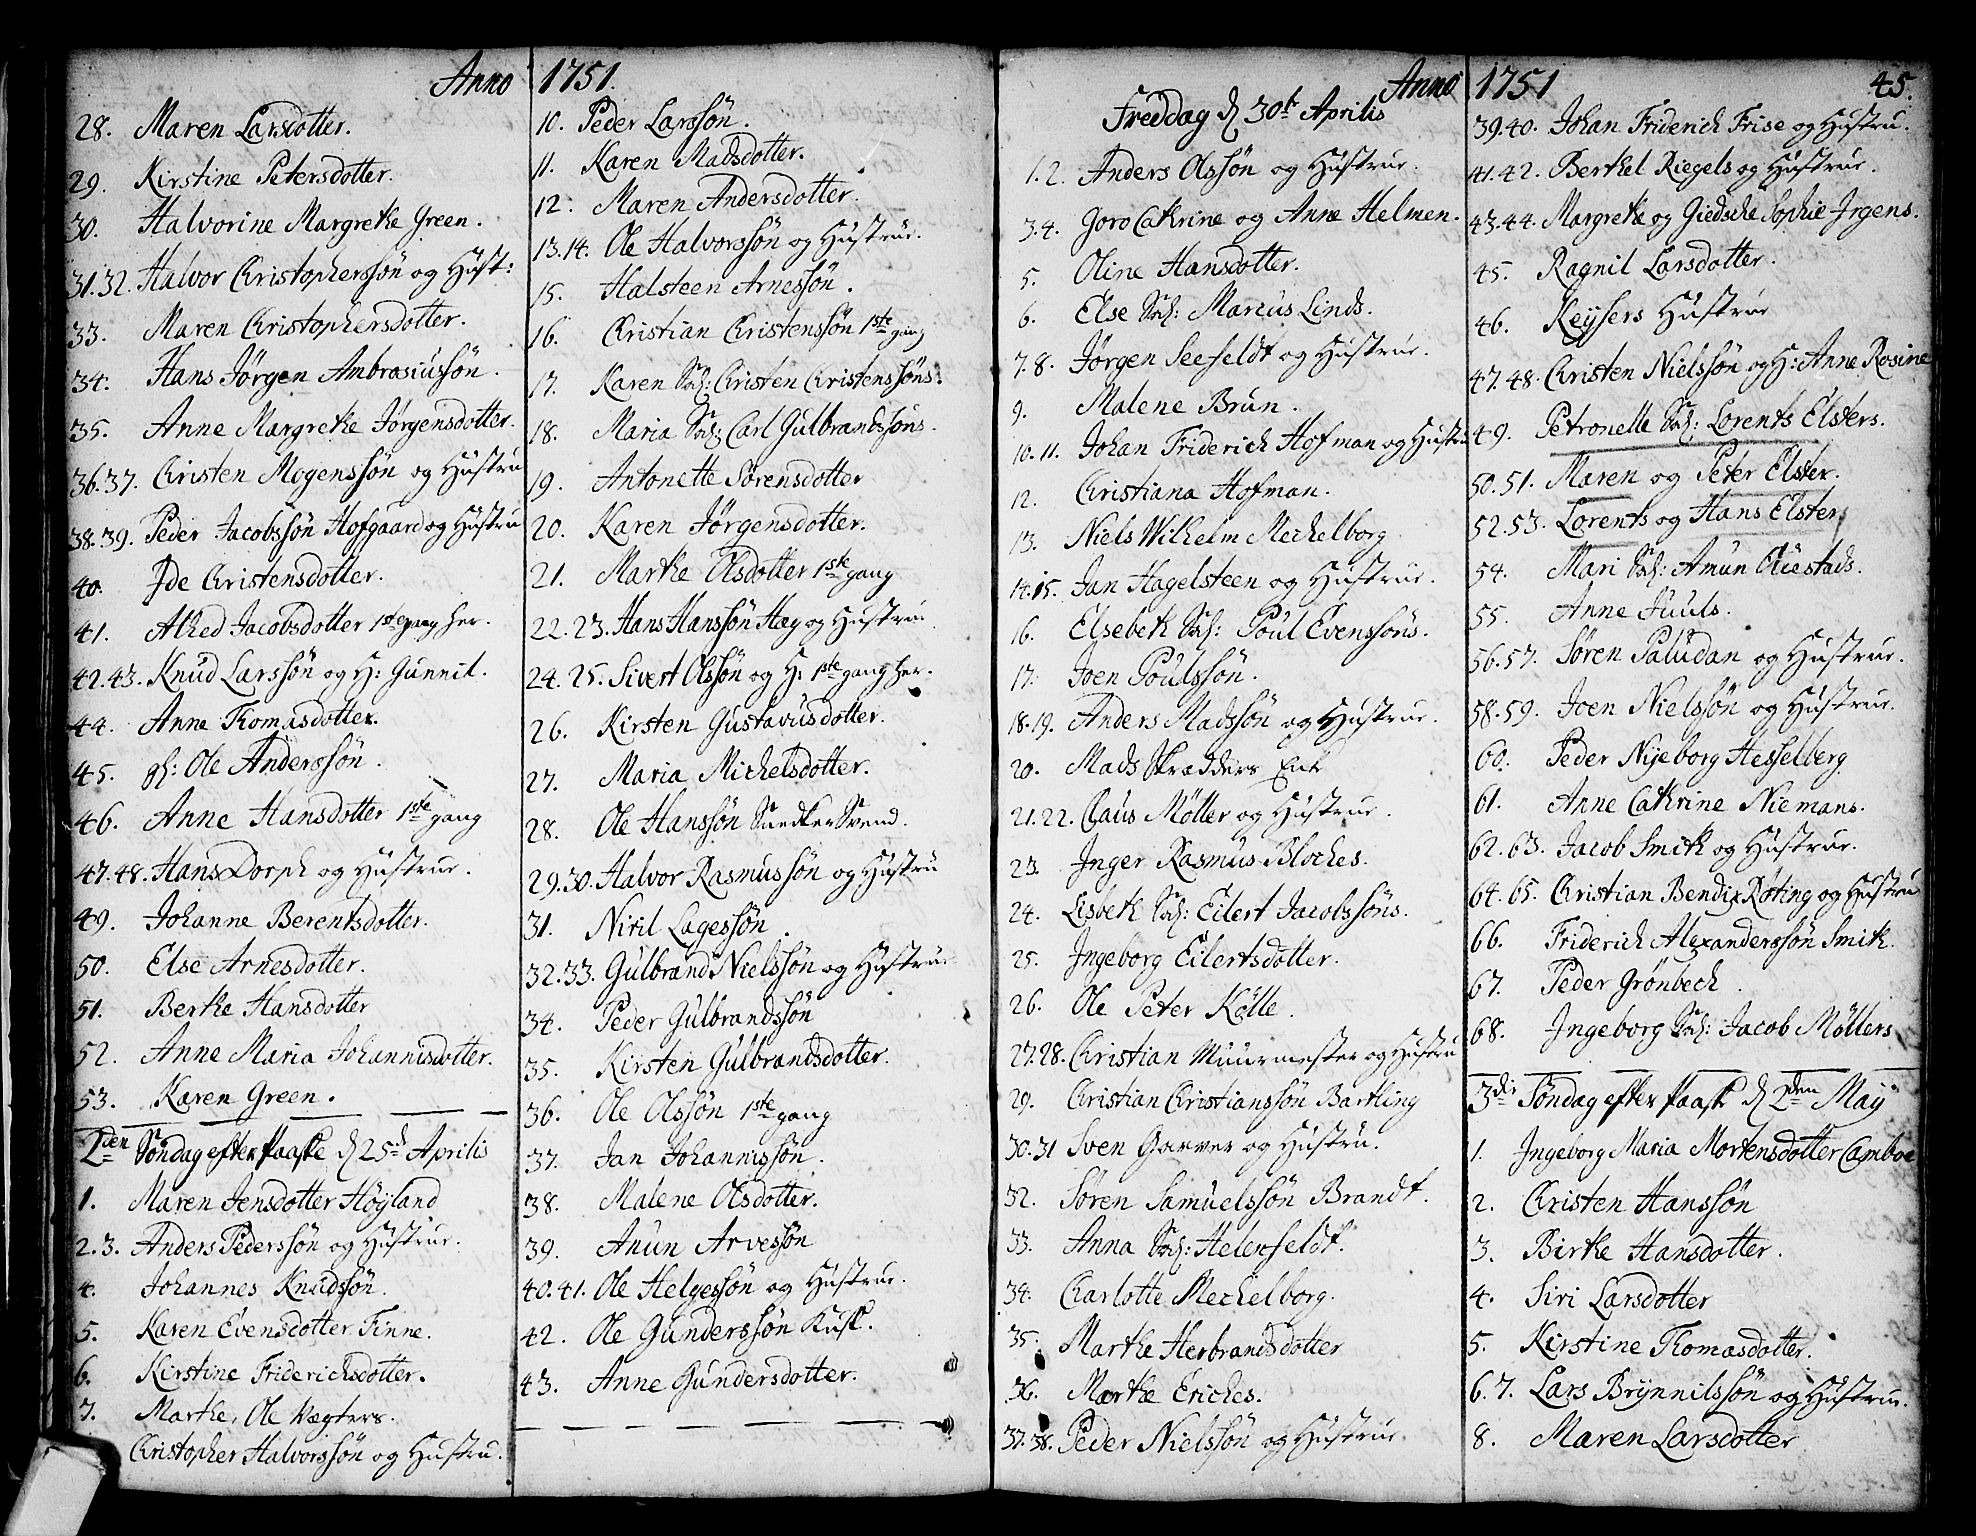 Anno 1751.
28. Maren Larsdotter.
29. Kirstine Petersdotter.
30. Halvorine Margrethe Green.
31.32. Halvor Christopherssøn og Hust:
33. Maren Christophersdotter.
34. Hans Jørgen Ambrosiussøn.
35. Anne Margrethe Jørgensdotter.
36.37. Christen Mogenssøn og Hustru
38.39. Peder Jacobssøn Hofgaard og Hustru
40. Ide Christensdotter.
41. Alhed Jacobsdotter 1ste gang her.
42.43. Knud Larssøn og H: Gunnil.
44. Anne Thomasdotter.
45. gl: Ole Anderssøn.
46. Anne Hansdotter 1ste gang
47.48. Hans Dorph og Hustrue.
49. Johanne Berentsdotter.
50. Else Arnesdotter.
51. Berthe Hansdotter
52. Anne Maria Johannisdotter.
53. Karen Green.
2den Søndag efter Paaske d 25d Aprilis
1. Maren Jensdotter Høyland
2.3. Anders Pederssøn og Hustrue.
4. Johannes Knudssøn.
5. Karen Evensdotter Finne.
6. Kirstine Friderichsdotter.
7. Marthe, Ole Vægters.
Christopher Halvorssøn og Hustru.
10. Peder Larssøn.
11. Karen Madsdotter.
12. Maren Andersdotter.
13.14. Ole Halvorssøn og Hustrue.
15. Halsteen Arnessøn.
16. Christian Christenssøn 1ste gang
17. Karen Sal: Christen Christenssøns.
18. Maria Sal: Carl Gulbrandssøns.
19. Antonette Sørensdotter
20. Karen Jørgensdotter.
21. Marthe Olsdotter 1ste gang
22.23. Hans Hanssøn Hæg og Hustru.
24.25. Sivert Olssøn og H: 1ste gang her.
26. Kirsten Gustavusdotter.
27. Maria Michelsdotter.
28. Ole Hanssøn Snedker Svend.
29.30. Halvor Rasmussøn og Hustru
31. Niril Lagessøn.
32.33. Gulbrand Nielssøn og Hustrue
34. Peder Gulbrandssøn
35. Kirsten Gulbrandsdotter.
36. Ole Olssøn 1ste gang
37. Jan Johannissøn.
38. Malene Olsdotter.
39. Anun Arvessøn
40.41. Ole Helgessøn og Hustrue.
42. Ole Gunderssøn Kusk.
43. Anne Gundersdotter.
Anno 1751 45.
Freddag d 30te Aprilis
1.2. Anders Olssøn og Hustrue.
3.4. Goro Cathrine og Anne Helmen.
5. Oline Hansdotter.
6. Else Sal: Marcus Linds.
7.8. Jørgen Seefeldt og Hustrue.
9. Malene Brun.
10.11. Johan Friderich Hofman og Hustru
12. Christiana Hofman.
13. Niels Wilhelm Mechelborg
14.15. Jan Hagelsteen og Hustrue.
16. Elsebeth Sal: Poul Evensøns.
17. Joen Poulssøn.
18.19. Anders Madssøn og Hustrue.
20. Mads Skrædders Enke
21.22. Claus Møller og Hustrue.
23. Inger Rasmus Bloches.
24. Lisbeth Sal: Eilert Jacobssøns.
25. Ingeborg Eilertsdotter.
26. Ole Peter Kølle.
27.28. Christian Muurmester og Hustru
29. Christian Christianssøn Bartling
30.31 Sven Garver og Hustru.
32. Søren Samuelssøn Brandt.
33. Anna Sal: Helenfeldt.
34. Charlotte Mechelborg.
35. Marthe Herbrandsdotter
36. Marthe Eriches.
37.38. Peder Nielssøn og Hustrue.
39.40. Johan Friderich Frise og Hustru.
41.42. Berthel Riegels og Hustrue.
43.44. Margrete og Giedsche Sophie Irgens.
45. Ragnil Larsdotter.
46. Keysers Hustrue
47.48. Christen Nielssøn og H: Anne Rosine
49. Petronelle Sal: Lorents Elsters.
50.51. Maren og Peter Elster.
52.53. Lorents og Hans Elster
54. Mari Sal: Amun Oliestads.
55. Anne Juuls.
56.57. Søren Paludan og Hustrue.
58.59. Joen Nielssøn og Hustrue.
60. Peder Nyeborg Hesselberg
61. Anne Cathrine Niemans.
62.63. Jacob Smith og Hustrue.
64.65. Christian Bendix Røting og Hustrue
66. Friderich Alexanderssøn Smith.
67. Peder Grønbech.
68. Ingeborg Sal: Jacob Møllers
3die Søndag efter Paaske d 2den May
1. Ingeborg Maria Mortensdotter Camboe
2. Christen Hanssøn
3. Birthe Hansdotter.
4. Siri Larsdotter
5. Kirstine Thomasdotter.
6.7. Lars Brynnilssøn og Hustrue.
8. Maren Larsdotter